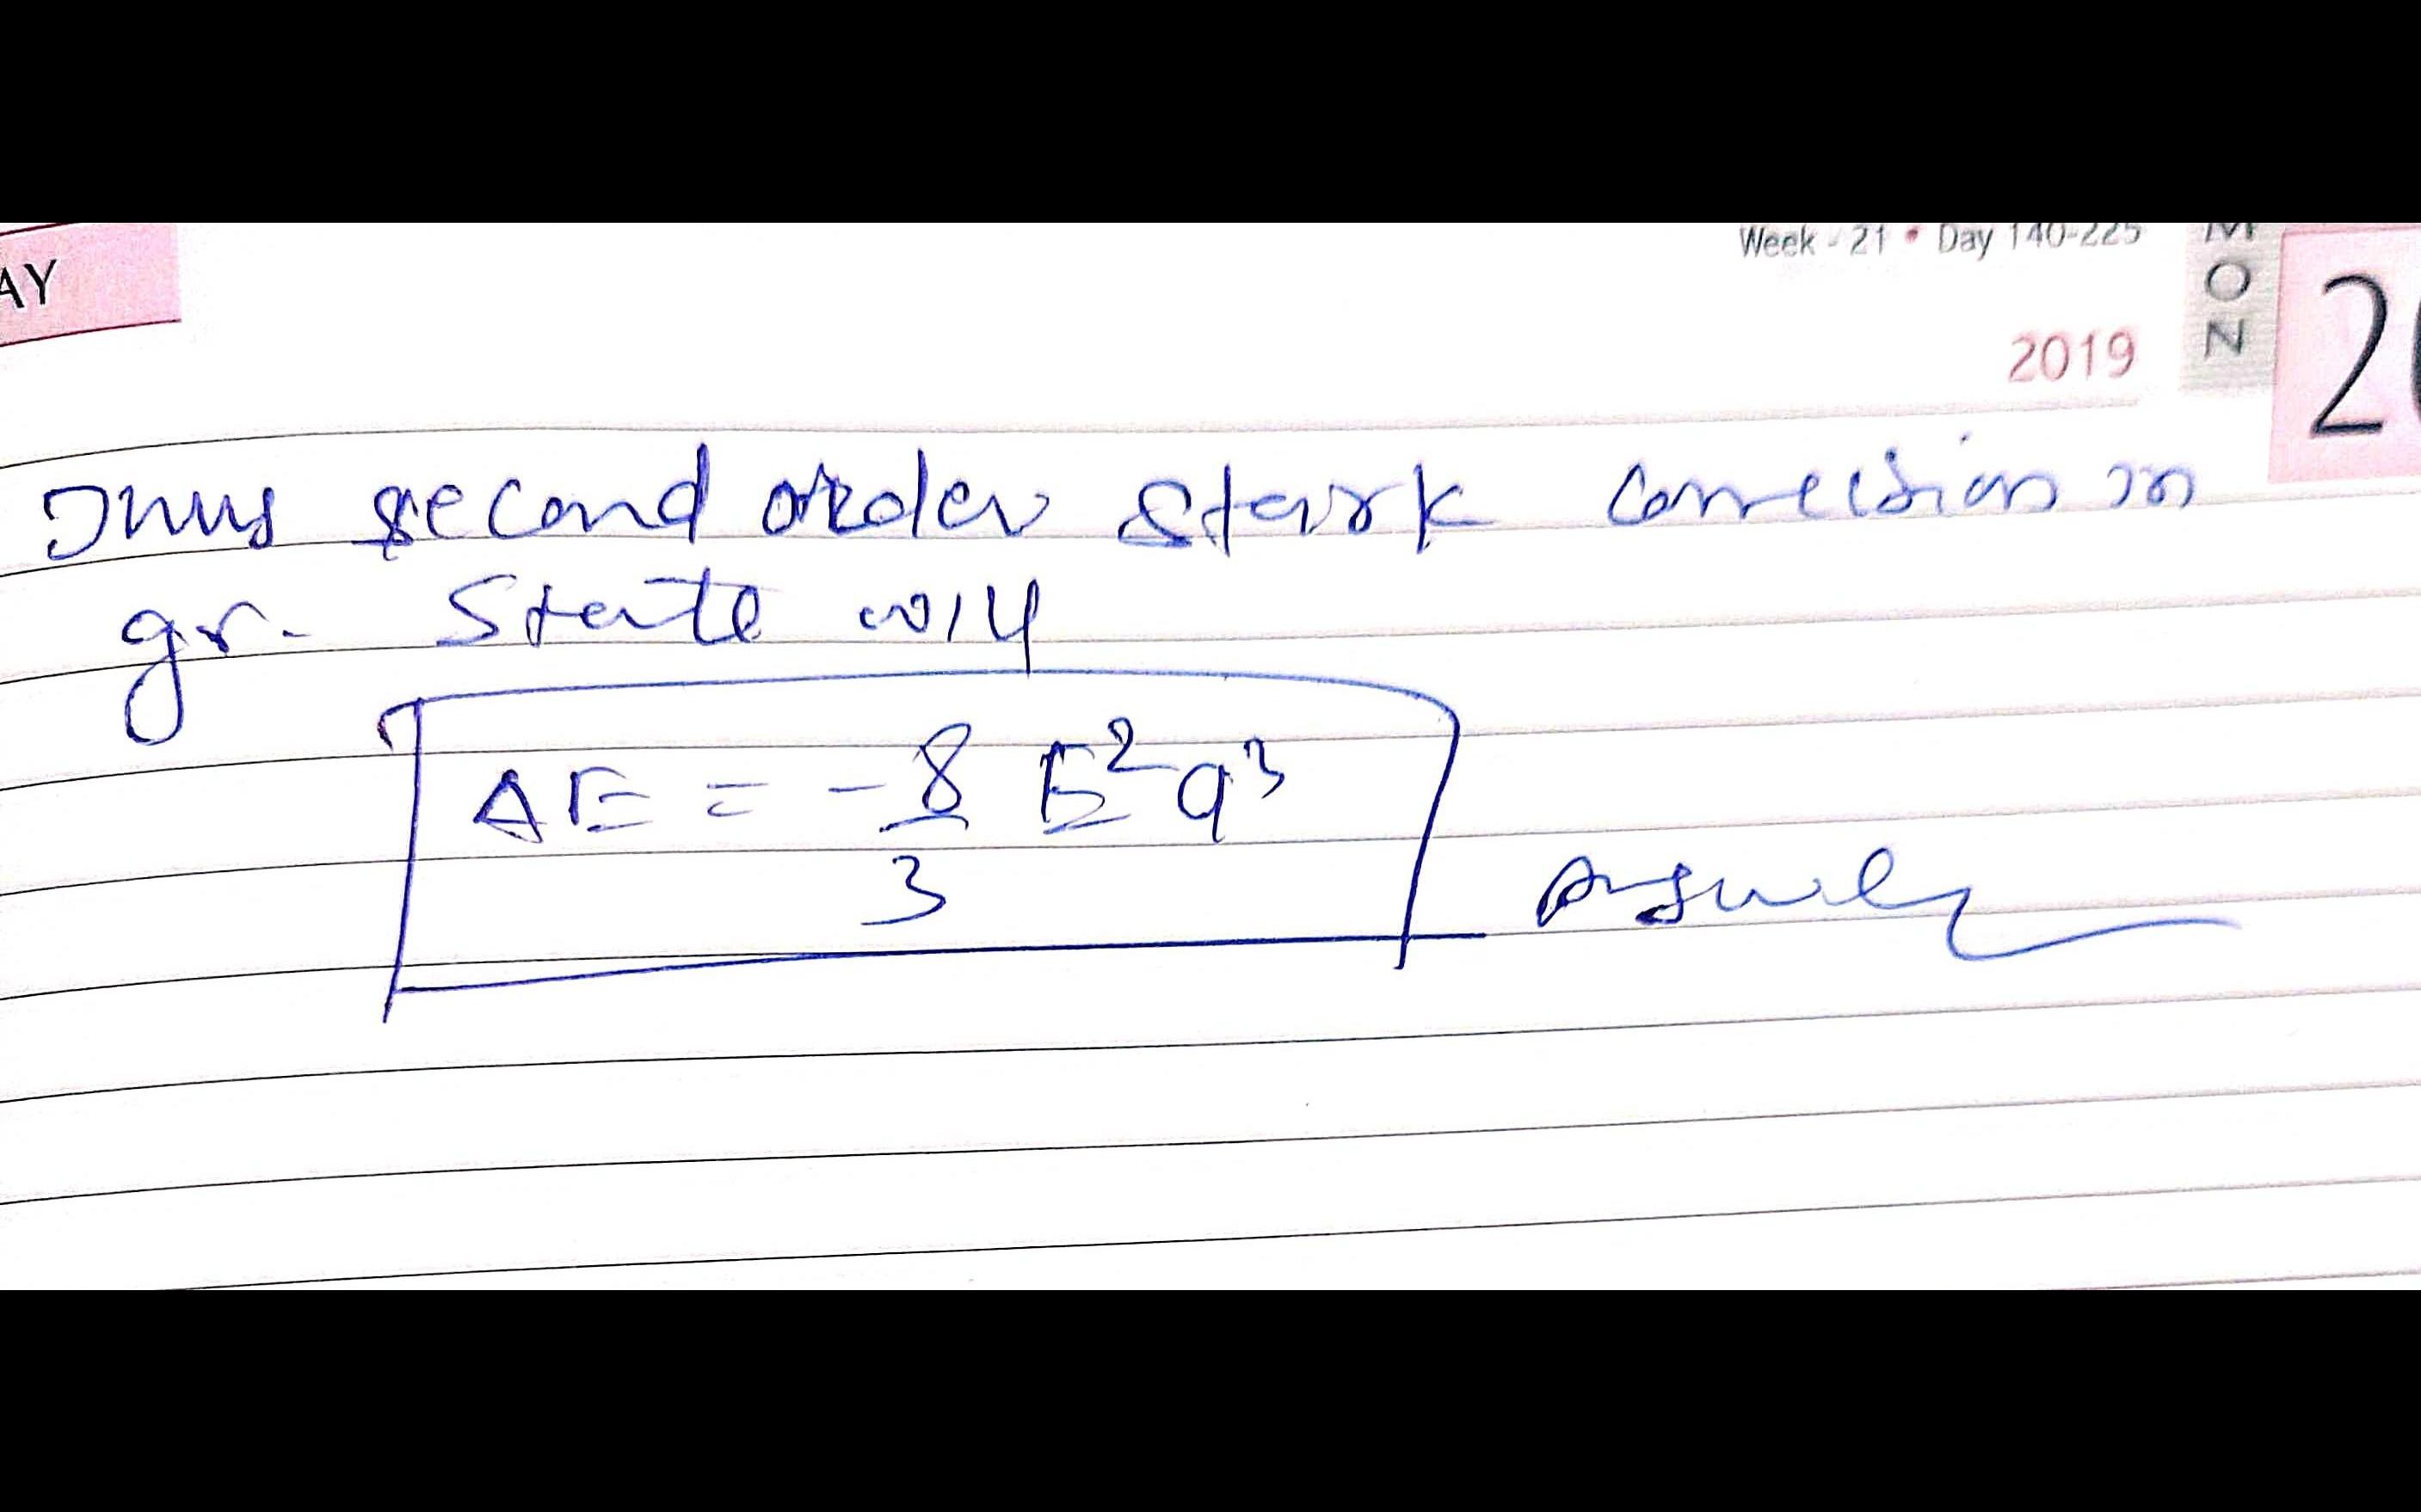 AY
Week - 21 • Day 140-225
MON
2019
2
Thus second order Stark correction in
gr. State will
ΔE = -8/3 E²a³
Answer